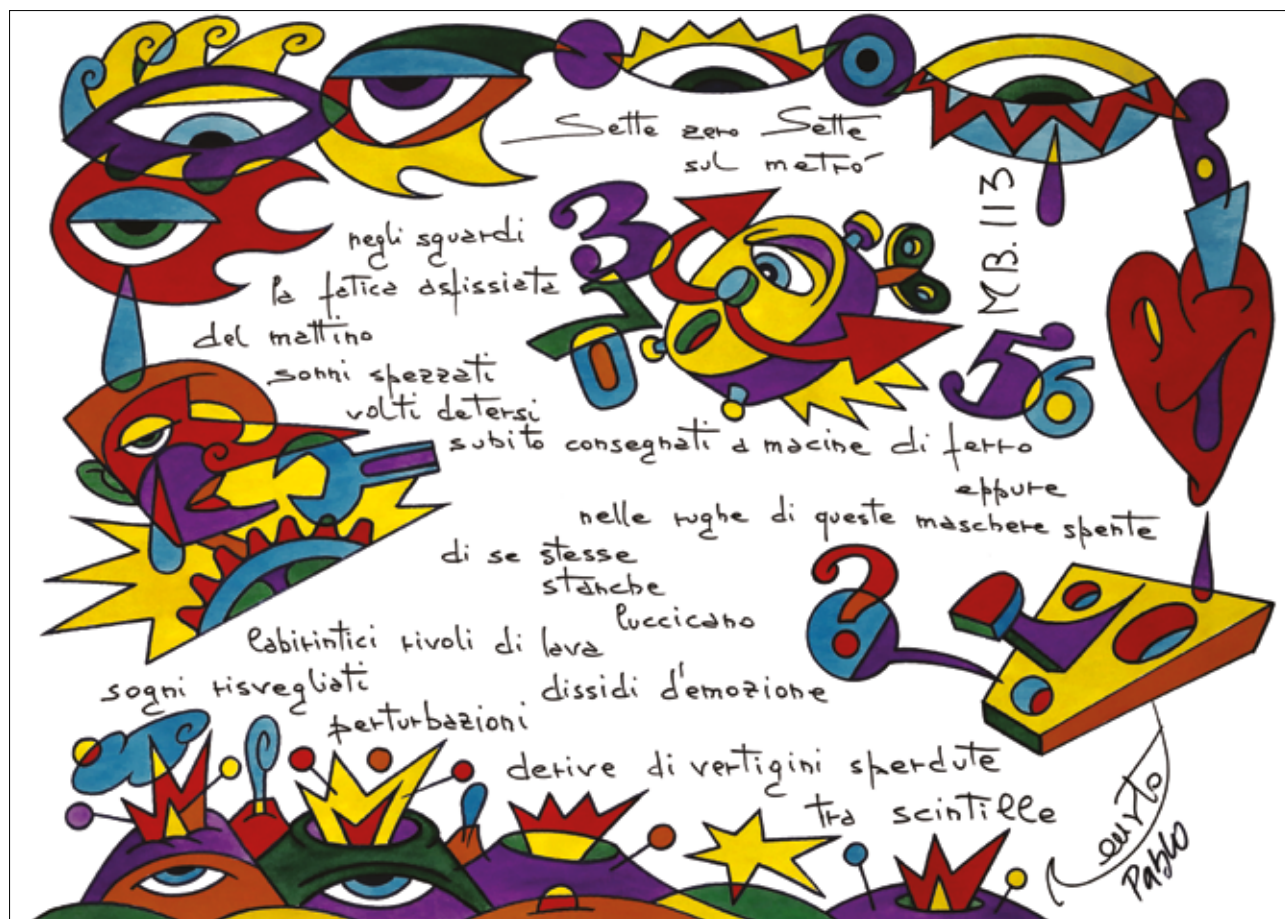 Sette zero Sette
sul metró
negli sguardi
la fatica asfissiata
del mattino
sonni spezzati
volti detersi
subito consegnati a macine di ferro
eppure
nelle rughe di queste maschere spente
di se stesse
stanche
luccicano
labirintici rivoli di lava
sogni risvegliati
dissidi d'emozione
perturbazioni
derive di vertigini sperdute
tra scintille
M.B. 113
3
7
0
5
6
?
Pablo